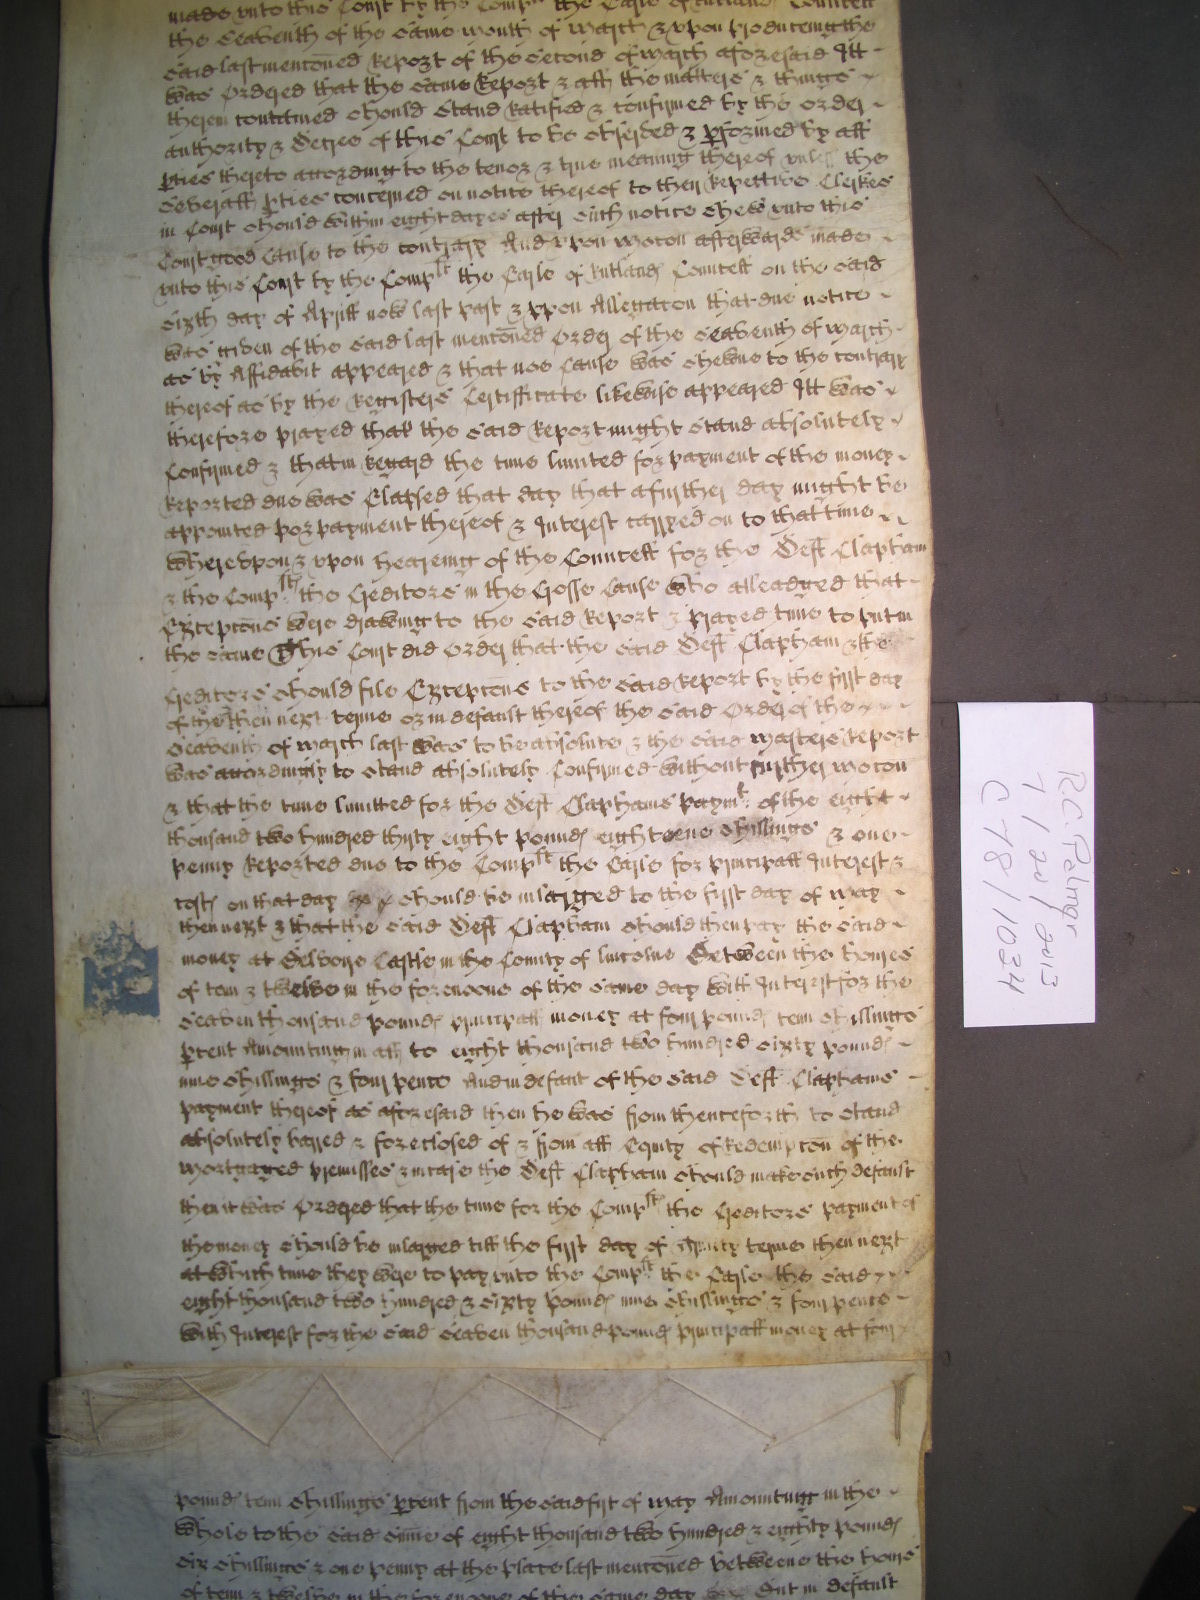 made unto this Court by the Comp.lt the Earle of Rutlands Councell
the Seaventh of the same month of March & upon produceing the
said last mentoned Report of the second of March aforesaid Itt
was Ordered that the same Report & all the matters & things
therein contained should stand Ratified & confirmed by the Order
authority & Decree of this Court to be observed & pformed by all
pties thereto according to the tenor & true meaning thereof unless the
severall pties concerned on notice thereof to their Repective Clerkes
in Court should within eight dayes after such notice shew unto this
Court good cause to the contrary And upon mocon afterwards made
unto this Court by the Comp.lt the Earle of Rutlands Councell on the said
sixth day of Aprill now last past & upon Allegacon that due notice
was given of the said last mentoned Order of the Seaventh of March
as by Affidavit appeared & that noe cause was shewne to the contrary
thereof as by the Registers Certifficate likewise appeared Itt was
therefore prayed that the said Report might stand absolutely
Confirmed & that in Regard the time limited for payment of the money
Reported due was Elapsed that day that a further day might be
appointed for payment thereof & Interest carryed on to that time
whereupon & upon heareing of the Councell for the Deft Clapham
& the Comp.lts the Creditors in the Crosse Cause who alleadged that
Exceptons were drawing to the said Report & prayed time to put in
the same This Court did Order that the said Deft Clapham & the
Creditors should file Exceptons to the said Report by the first day
of the then next terme or in default thereof the said Order of the
Seaventh of March last was to be absolute & the said Masters Report
was accordingly to stand absolutely Confirmed without further mocon
& that the time limitted for the Deft Claphams paym.t of the eight
thousand two hundred thirty eight pounds eighteene shillings & one
penny Reported due to the Comp.lt the Earle for principall Interest &
costs on that day should be inlarged to the first day of May
then next & that the said Deft Clapham should then pay the said
money at Belvoire Castle in the County of Lincolne Between the houres
of tenn & twelve in the forenoone of the same day with Interest for the
Seaven thousand pounds principall money at four pounds tenn shillings
pcent Amounting in all to eight thousand two hundred sixty pounds
nine shillings & four pence And in defaut of the said Deft Claphams
payment thereof as aforesaid then he was from thenceforth to stand
absolutely barred & foreclosed of & from all Equity of Redempton of the
Mortgaged premisses & in case the Deft Clapham should make such default
then it was Ordered that the time for the Comp.lts the Creditors payment of
the money should be inlarged till the first day of Trinity terme then next
at which time they were to pay unto the Comp.lt the Earle the said
eight thousand two hundred & sixty pounds nine shillings & four pence
with Interest for the said Seaven thousand pounds principall money at four
pounds tenn shillings pcent from the said first of May Amounting in the
whole to the said sume of eight thousand two hundred & eighty pounds
six shillings & one penny at the place last mentoned betweene the houres
of tenn & twelve in the forenoone of the same day But in default
R C Palmer
7/20/2013
C 78/1034